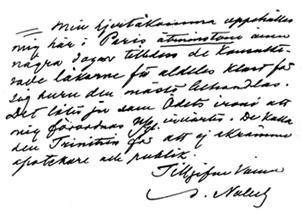 Min hjertåkomma uppehåller
mig här i Paris åtminstone ännu
några dagar tilldess de konsulte-
rade läkarne få aldeles klart för
sig huru den måste behandlas.
Det låter ju som Ödets ironi att
mig förordnas N/G invärtes. De kalla
den Trinitrin för att ej skrämma
apotekare och publik.
Tillgifne Vännen
A. Nobel